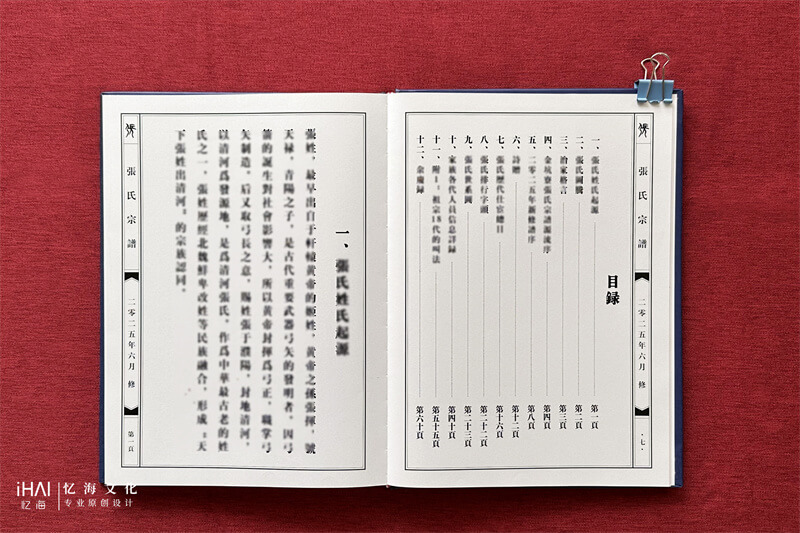 目録
一、張氏姓氏起源
第一頁
二、張氏圖騰
第二頁
三、治家格言
第三頁
四、金坑寮張氏宗譜源流序
第四頁
五、二零二五年新修譜序
第八頁
六、詩贈
第十二頁
七、張氏歷代仕宦總目
第十六頁
八、張氏排行字頭
第二十二頁
九、張氏世系圖
第二十三頁
十、家族各代人員信息詳録
第四十頁
十一、附1：祖宗18代的叫法
第五十五頁
十二、余慶録
第六十頁
張氏宗譜
二零二五年六月 修
·七·
一、張氏姓氏起源
張姓，最早出自于軒轅黄帝的姬姓，黄帝之孫張揮，號
天禄，青陽之子，是古代重要武器弓矢的發明者。因弓
箭的誕生對社會影響大，所以黄帝封揮爲弓正，職掌弓
矢制造，后又取弓長之意，賜姓張于濮陽，封地清河，
以清河爲發源地，是爲清河張氏，作爲中華最古老的姓
氏之一，張姓歷經北魏鮮卑改姓等民族融合，形成“天
下張姓出清河”的宗族認同。
張氏宗譜
二零二五年六月 修
第一頁
iHAI 忆海文化
忆海 专业原创设计